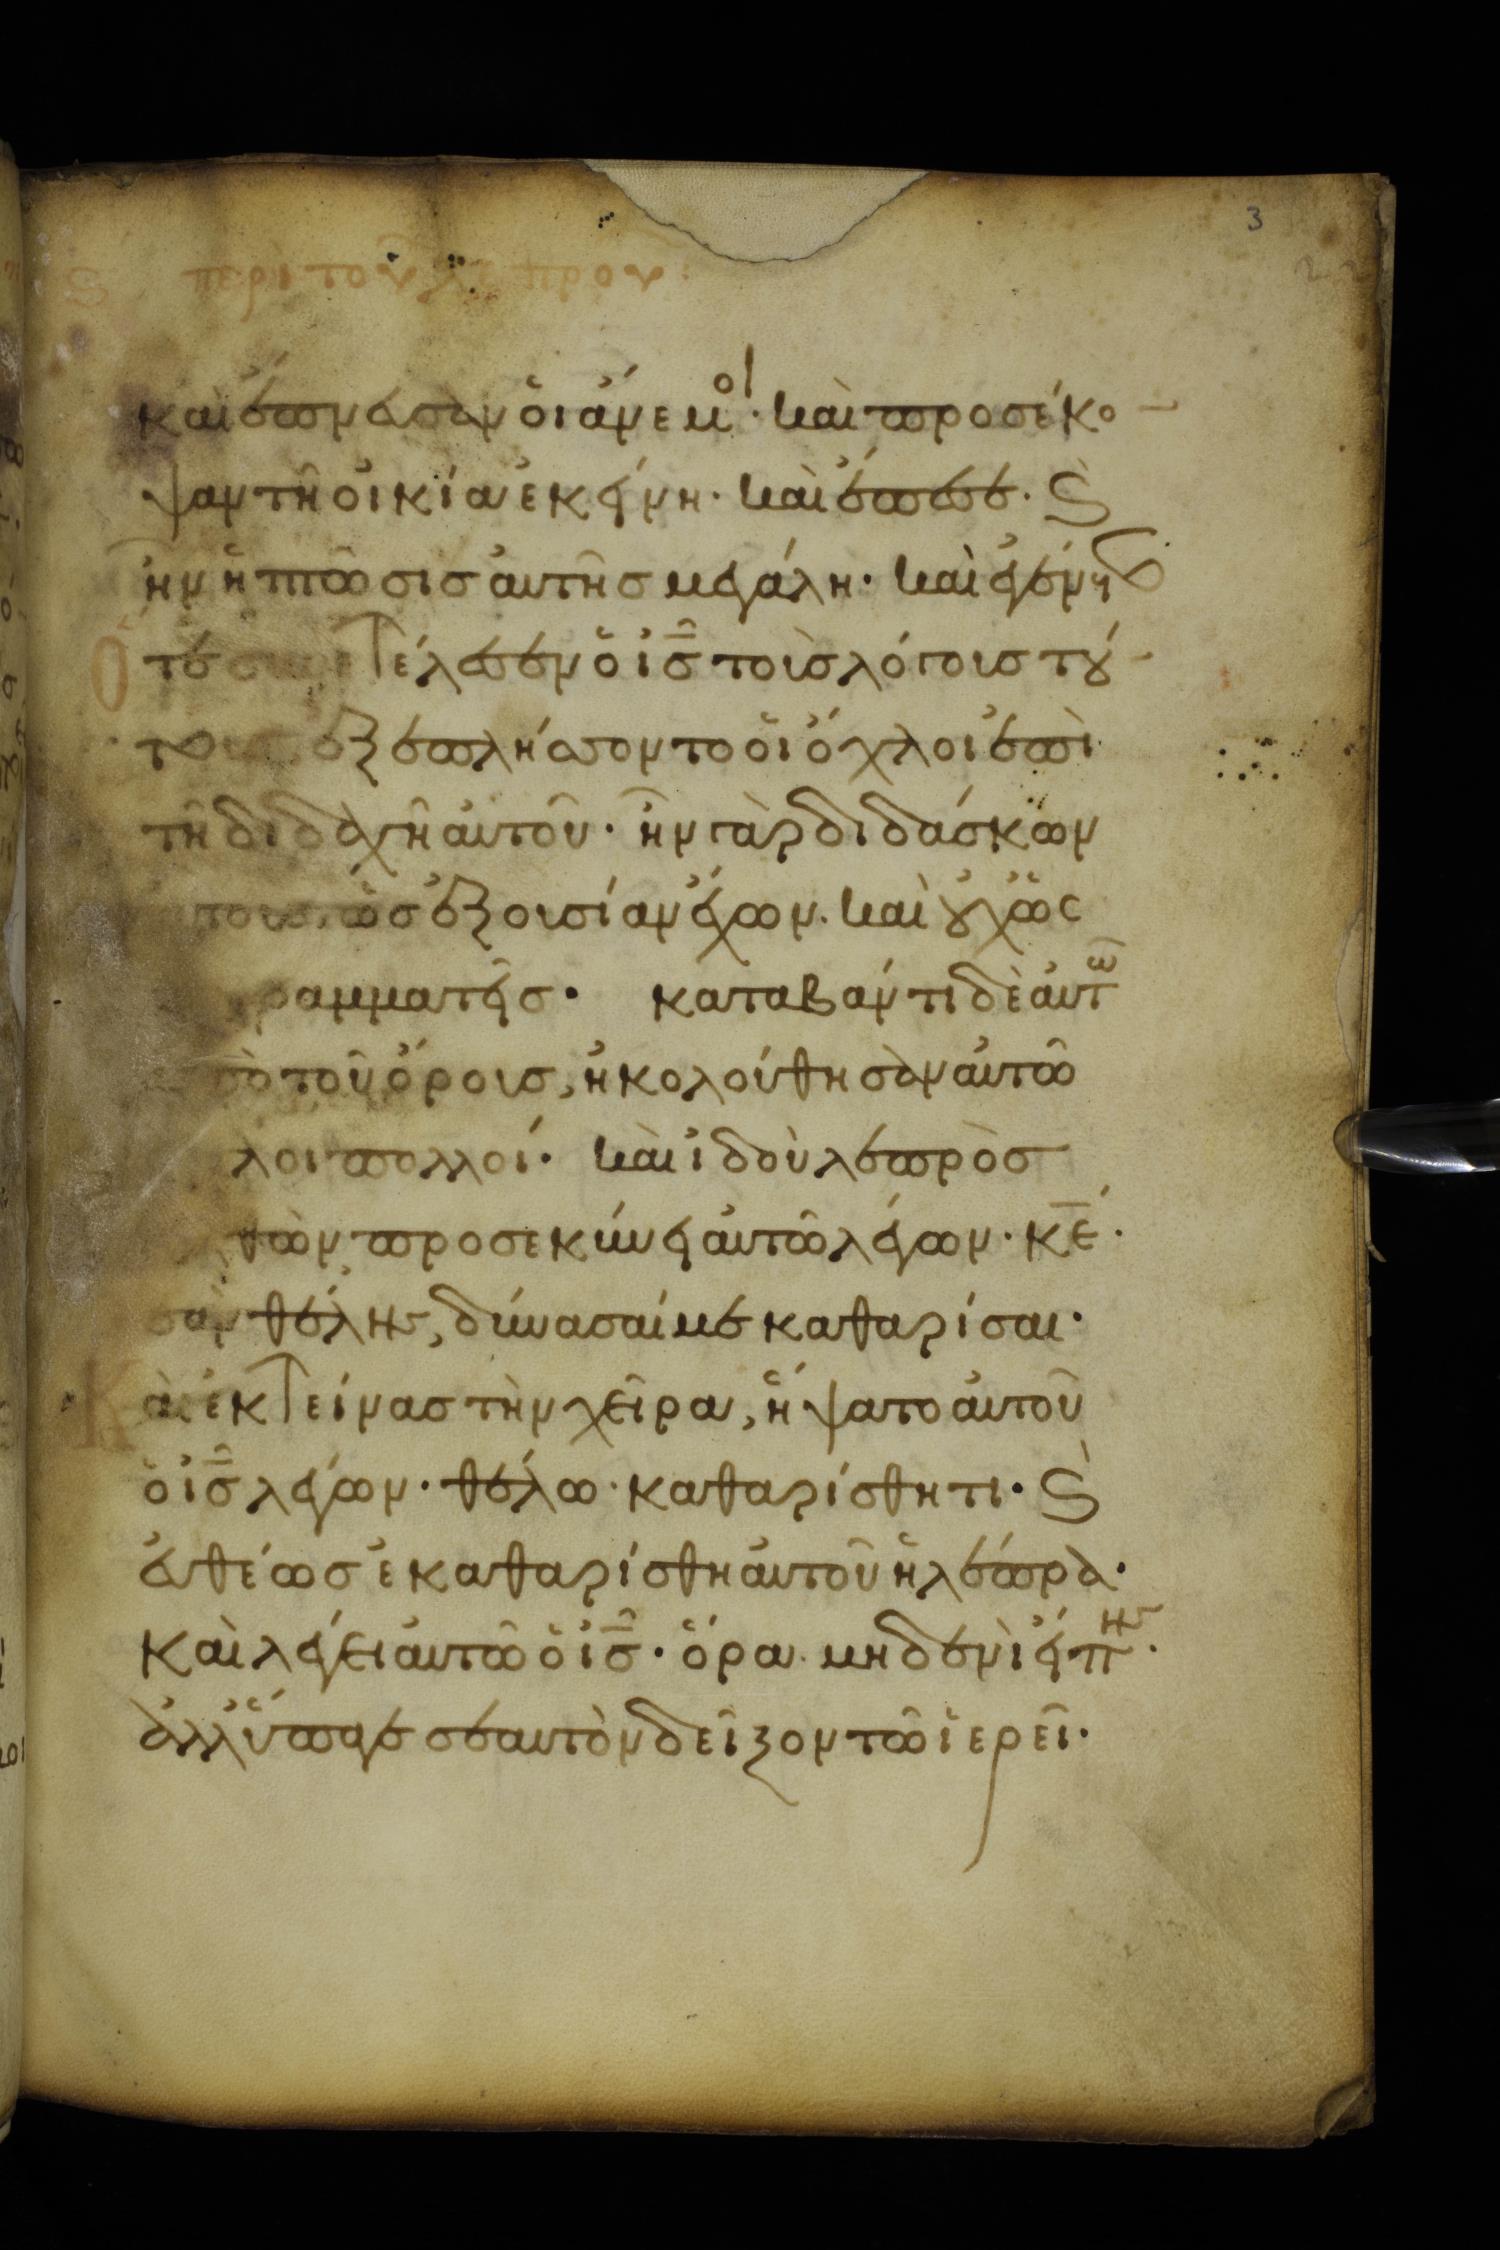 3
ϛ περὶ τοῦ λεπροῦ:
καὶ ἔπνευσαν ὁι ἄνεμοι· καὶ προσέκο
ψαν τῆ ὀικία ἐκείνη· καὶ ἔπεσε· ϛ
ἦν ἡ πτῶσισ ἀυτῆσ μεγάλη· καὶ ἐγένε
το ὅτε ἐτέλεσεν ὁ ισ τοὺσ λόγουσ τού
τουσ ἐξεπλήσσοντο ὁι ὄχλοι ἐπὶ
τῆ διδαχῆ ἀυτοῦ· ἦν γὰρ διδάσκων
ἀυτοὺσ ὡσ ἐξουσίαν ἔχων· καὶ ουχ ὡς
ραμματεῖσ· καταβάντι δὲ ἀυτῶ
πὸ τοῦ ὄρουσ, ἠκολούθησαν ἀυτῶ
λοι πολλοί· καὶ ἰδοὺ λεπρὸσ
θὼν προσεκύνει ἀυτῶ λέγων· κε·
ἐὰν θέλησ, δύνασαί με καθαρίσαι·
Καὶ ἐκτείνασ τὴν χεῖρα, ἥψατο ἀυτοῦ
ὁ ισ λέγων· θέλω· καθαρίσθητι· ϛ
ἐυθέωσ ἐκαθαρίσθη ἀυτοῦ ἡ λέπρα·
Καὶ λέγει ἀυτῶ ὁ ισ· ὅρα μηδενὶ εἴπησ·
ἀλλ' ὕπαγε σεαυτὸν δεῖξον τῶ ἱερεῖ·